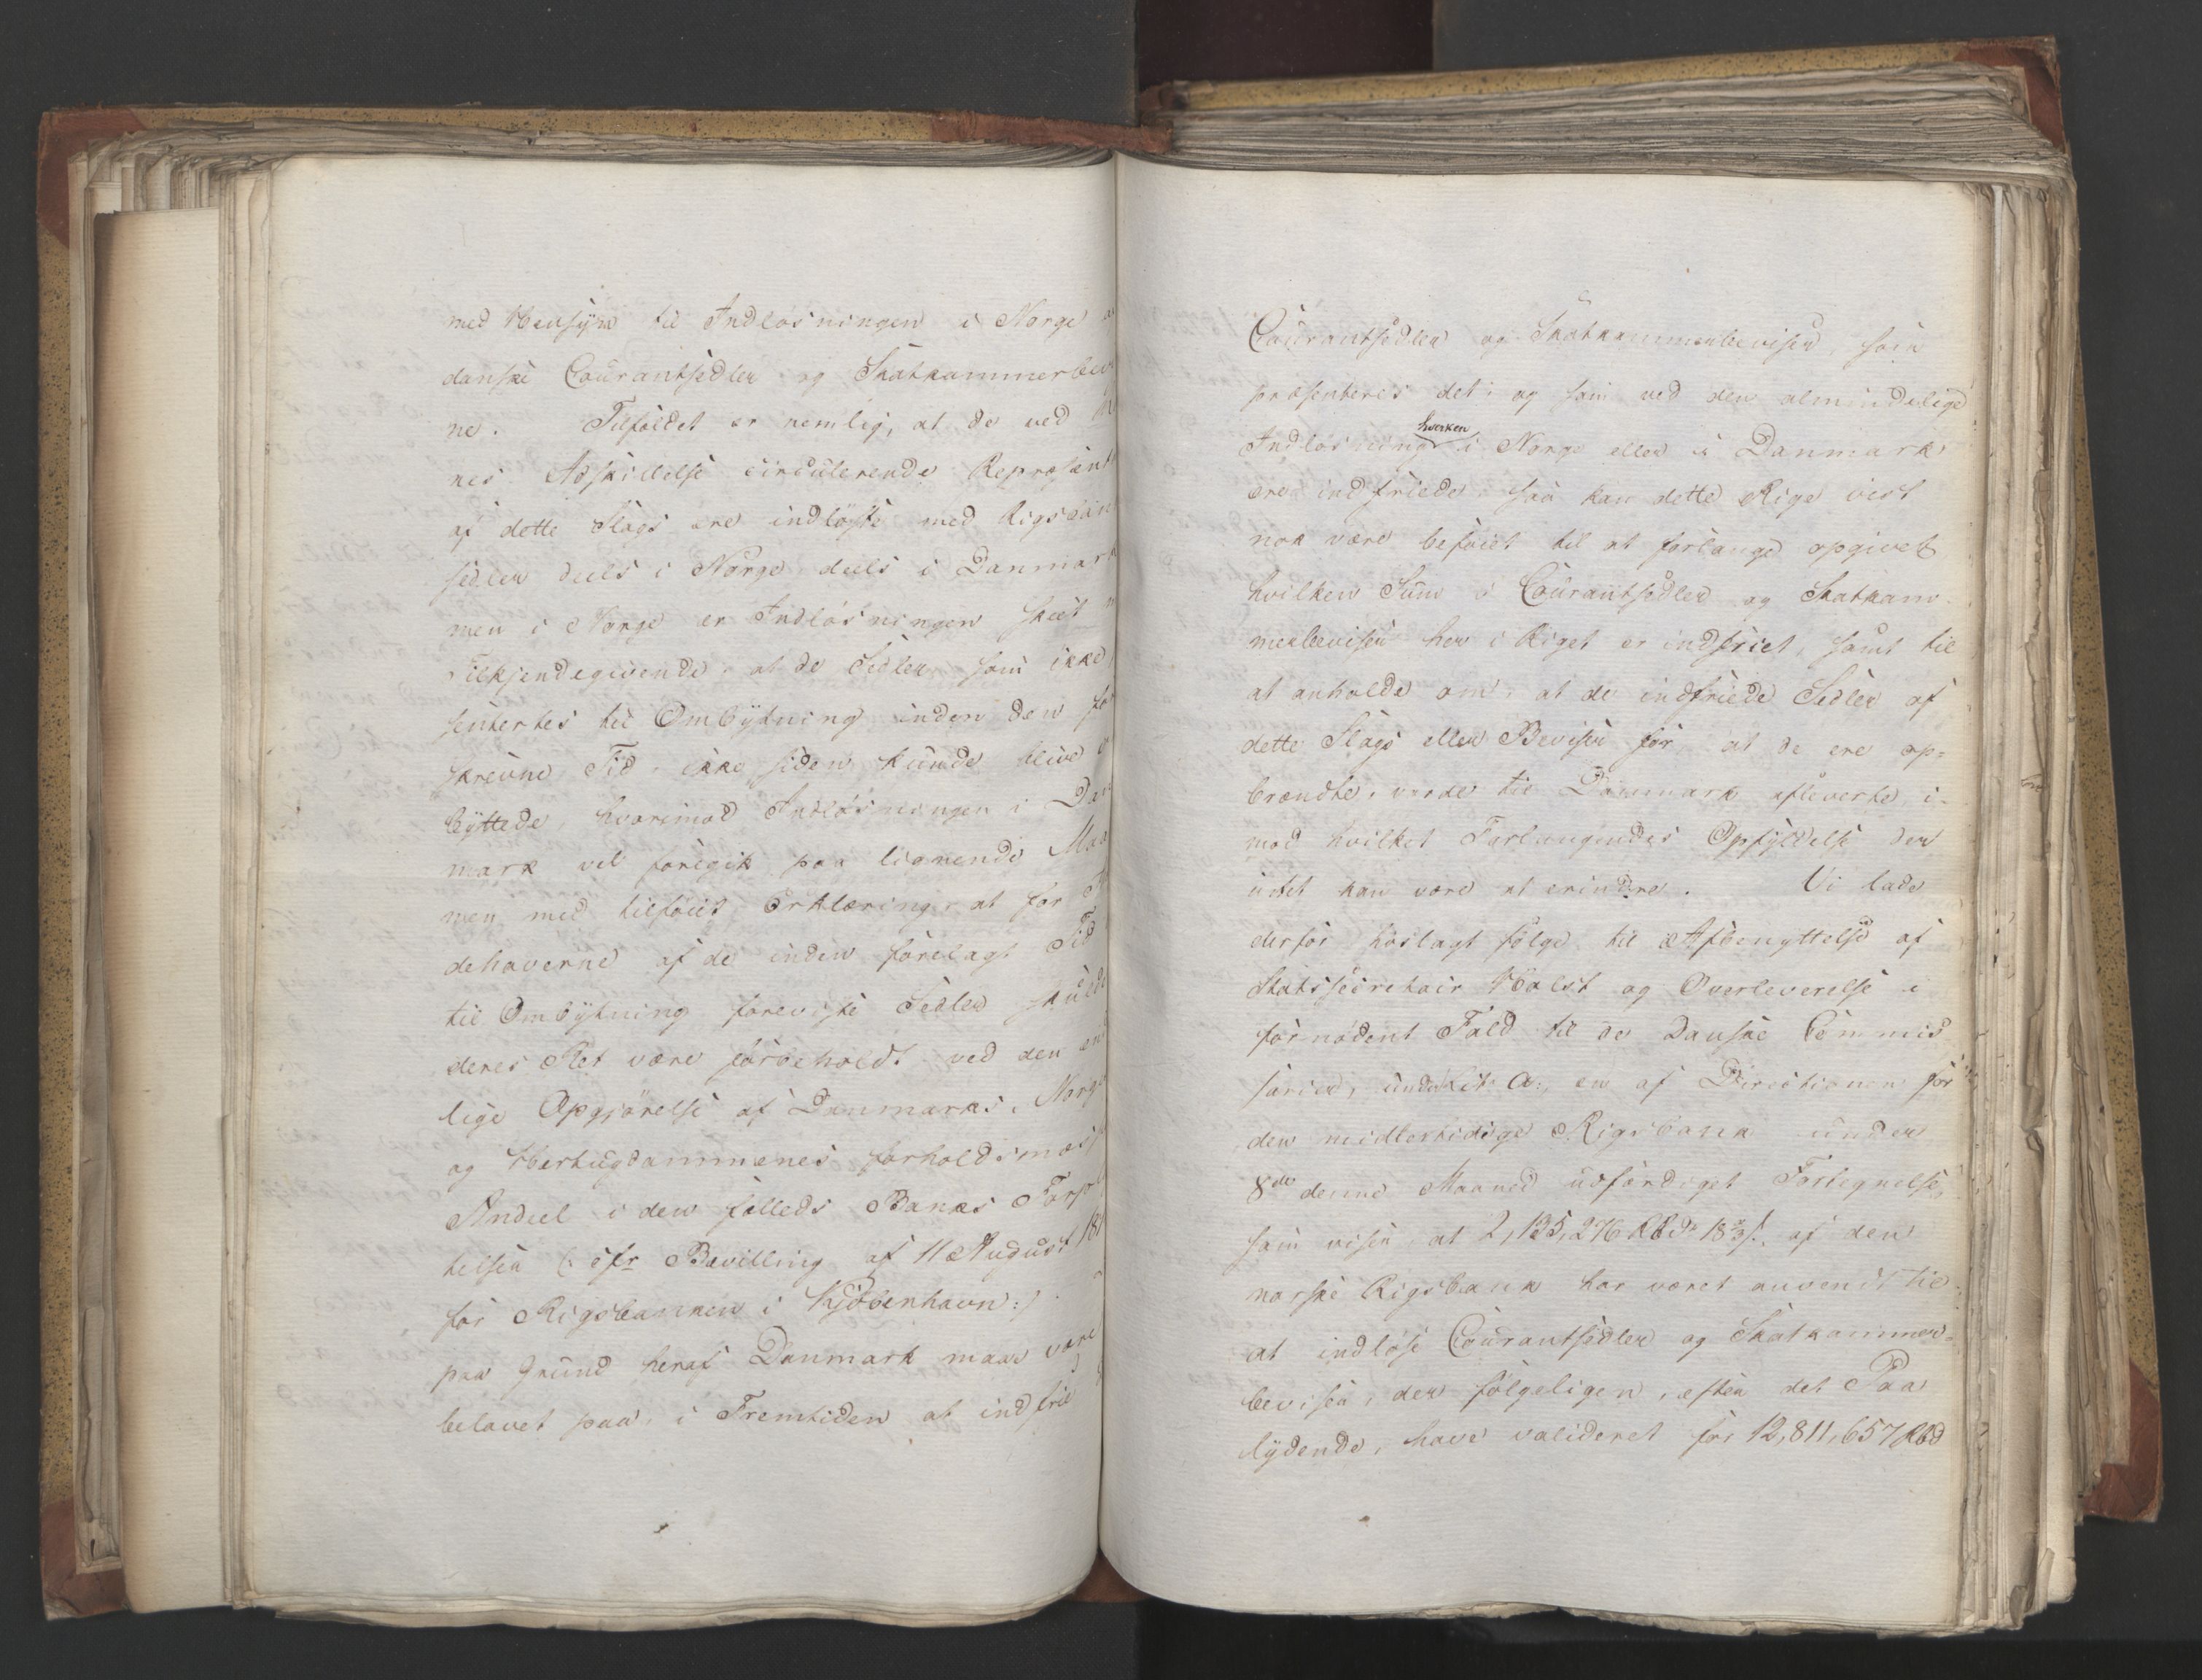 med Hensÿn til Indløsningen i Norge a
danske Courantsedler og Skatkammerbevi
ne. Tilfældet er nemlig, at de ved
nes Adskillelse circulerende Repræsent
af dette Slags ere indløste med Rigsban
sedler deels i Norge deels i Danmark
men i Norge er Indløsningen skeet
Tilkjendegivende, at de Sedler, som ikke
sentertes til Ombÿtning inden den for
skrevne Tid, ikke siden kunde blive
bÿttede, hvorimod Indløsningen i Dan
mark vel foregik paa lignende Maa
men med tilføiet Erklæring, at for
dehaverne af de inden forelagt Tid
til Ombÿtning foreviste Sedler skulde
deres Ret være forbeholdt ved den en
lige Opgjørelse af Danmarks, Norge
og Hertugdømmenes forholdsmæss
Andeel i den fælleds Banks Forpl
telser (: cfr Bevilling af 11 August 181
for Rigsbanken i Kjøbenhavn:).
paa Grund heraf Danmark maae være
belavet paa, i Fremtiden at indfrie
Courantsedler og Skatkammerbeviser, som
præsenteres det, og som ved den almindelige
Indløsning hverken i Norge eller i Danmark
ere indfriede, saa kan dette Rige vist
nok være beføiet til at forlange opgivet
hvilken Sum i Courantsedler og Skatkam-
merbeviser her i Riget er indfriet, samt til
at anholde om, at de indfriede Sedler af
dette Slags eller Beviser før, at de ere op-
brændte, vorde til Danmark afleverte, i-
mod hvilket Forlangendes Opfÿldelse der
intet kan være at erindre. Vi lade
derfor hoslagt følge til Afbenyttelse af
Statssecretair Holst og Overleverelse i
fornødent Fald til de Danske Commis
sarier, under Lit: A:, en af Directionen for
den midlertidige Rigsbank under
8de denne Maaned udfærdiget Fortegnelse,
som viser, at 2,135,276 Rbdr 18 2/3 s. af den
norske Rigsbank har været anvendt til
at indløse Courantsedler og Skatkammer-
beviser, der følgeligen, efter det Paa
lÿdende, have valideret for 12,811,657 Rbd